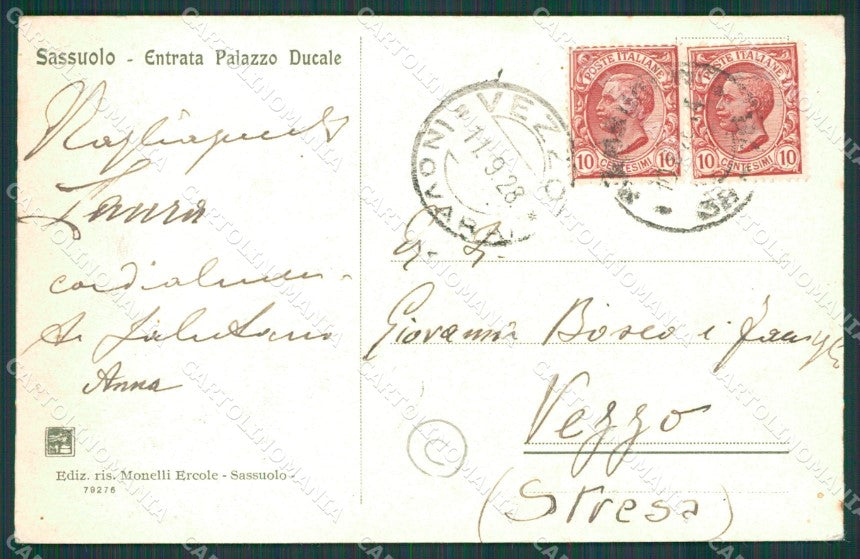 Sassuolo - Entrata Palazzo Ducale
Laura
cordialmen-
te salutano
Anna
Ediz. ris. Monelli Ercole - Sassuolo -
79276
VEZZO
NOVARA
11.9.28
POSTE ITALIANE
10 CENTESIMI 10
POSTE ITALIANE
10 CENTESIMI 10
Giovanni Bosco e famiglia
Vezzo
(Stresa)
C
CARTOLINOMANIA